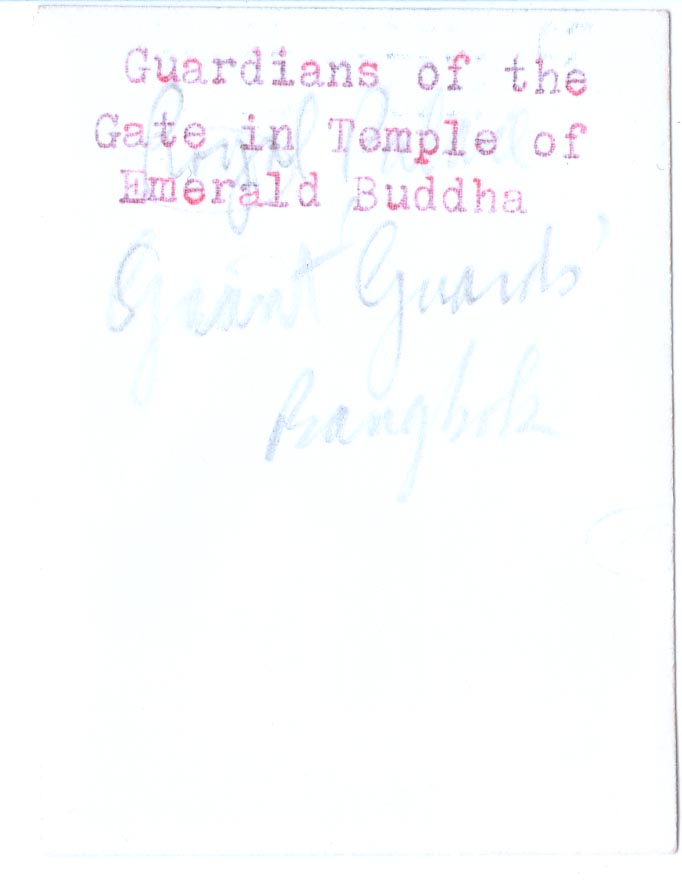 Guardians of the
Gate in Temple of
Emerald Buddha
Royal Palace
Giant Guards'
Bangkok